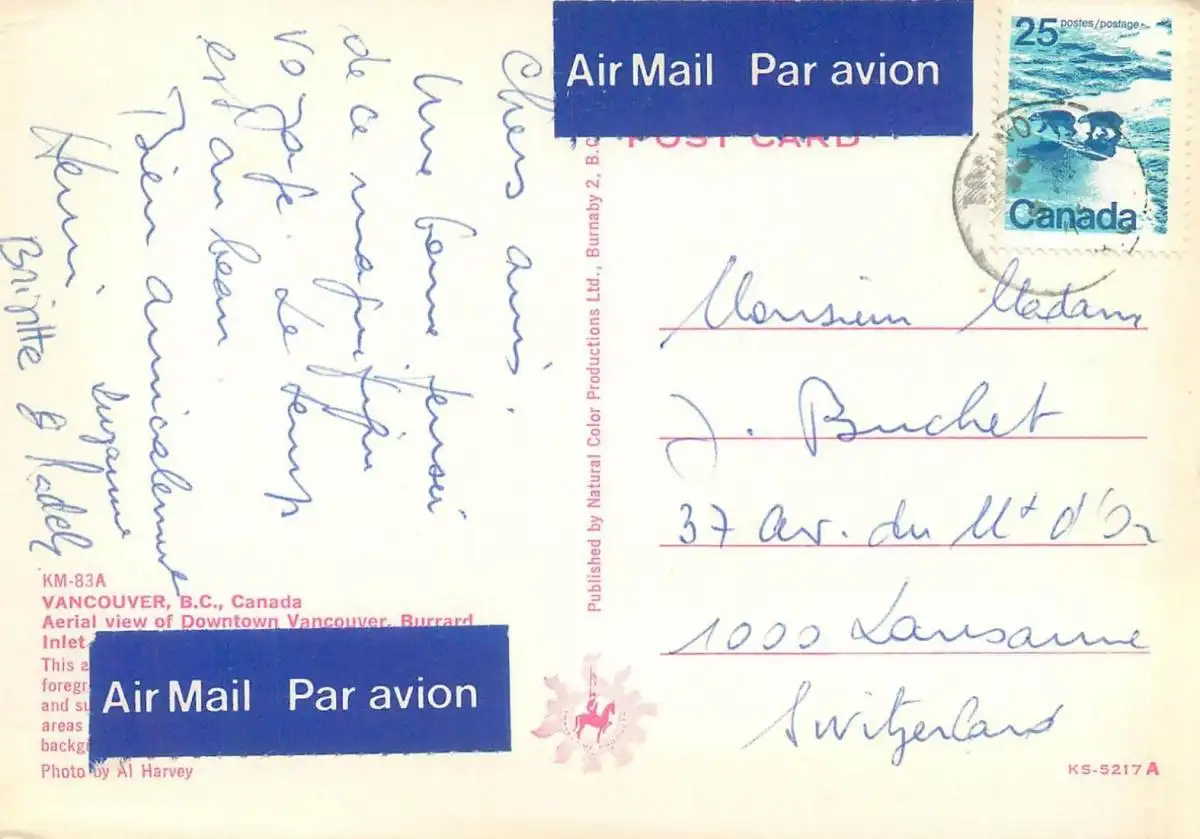 Chers amis.
Une bonne pensée
de ce magnifique
voyage. Le temps
est au beau
Bien amicalement
Suzanne
Henri
Brigitte & 
Air Mail Par avion
POST CARD
25 postes/postage
Canada
Monsieur Madame
J. Buchet
37 av. du Mt d'Or
1000 Lausanne
Switzerland
Published by Natural Color Productions Ltd., Burnaby 2, B.C.
KM-83A
VANCOUVER, B.C., Canada
Aerial view of Downtown Vancouver, Burrard
Inlet
This a
foregr
and su
areas
backg
Air Mail Par avion
Photo by Al Harvey
KS-5217 A